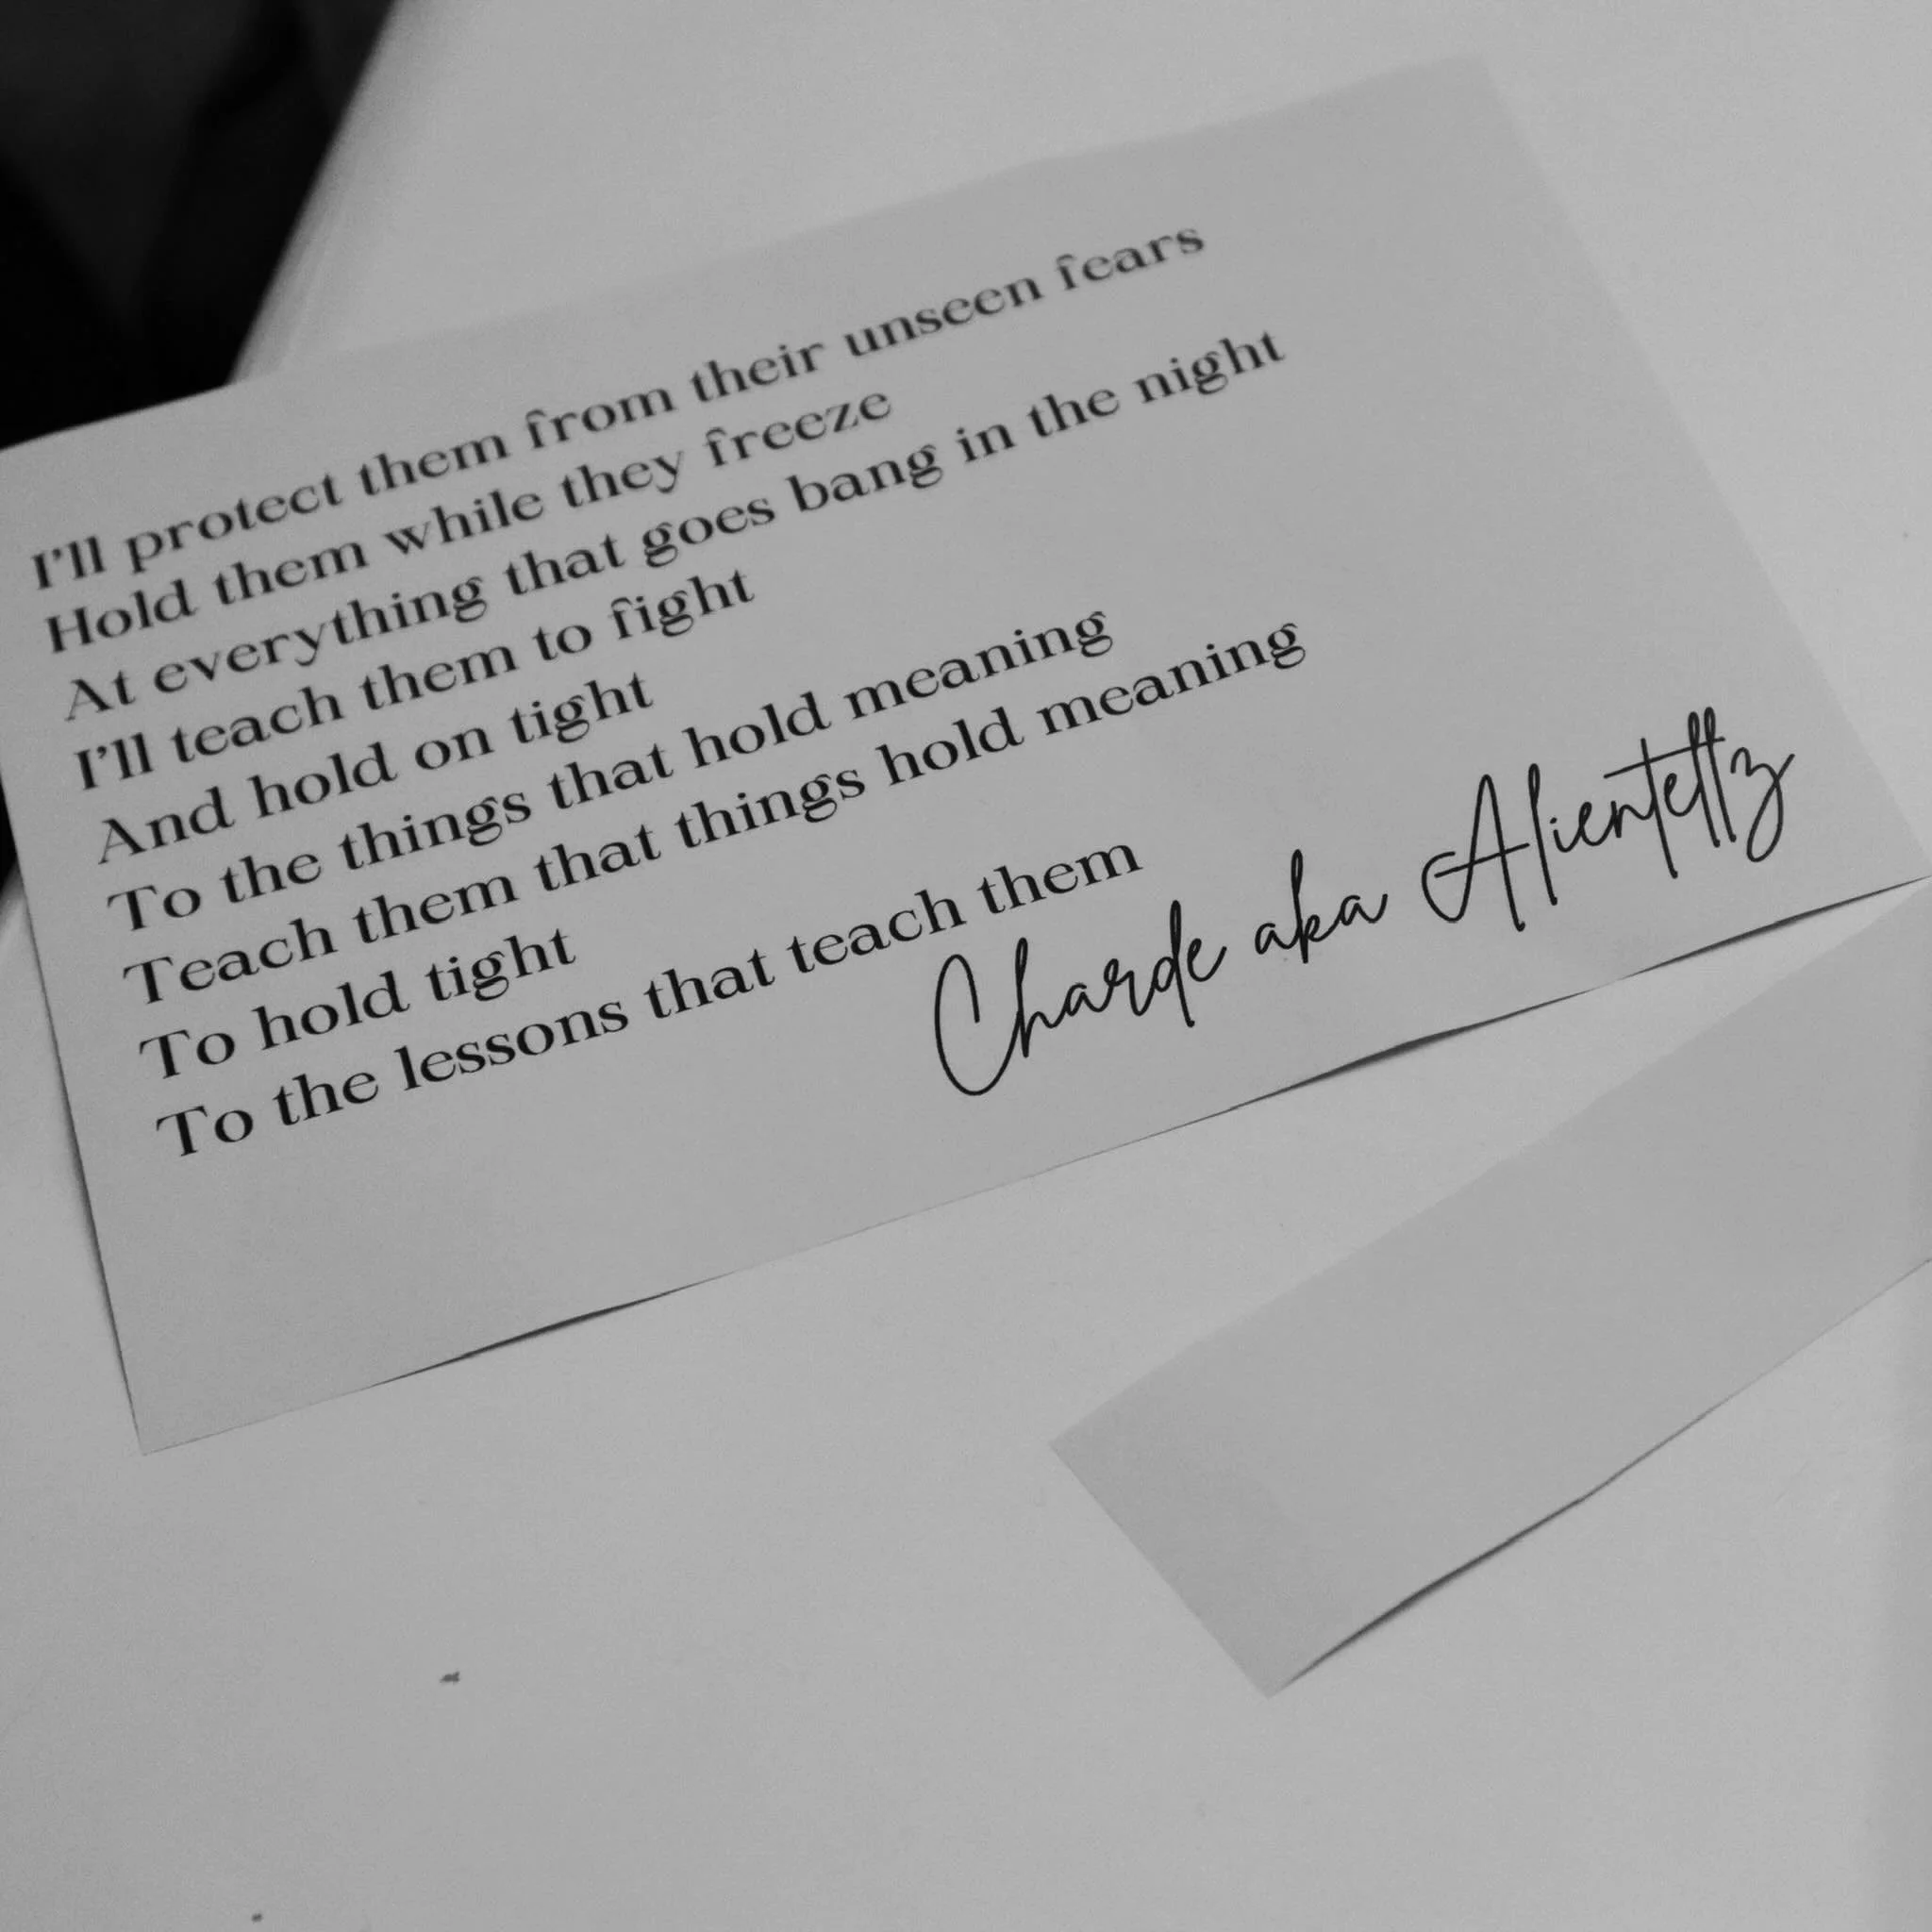 I'll protect them from their unseen fears
Hold them while they freeze
At everything that goes bang in the night
I'll teach them to fight
And hold on tight
To the things that hold meaning
Teach them that things hold meaning
To hold tight
To the lessons that teach them
Charde aka Alientellz